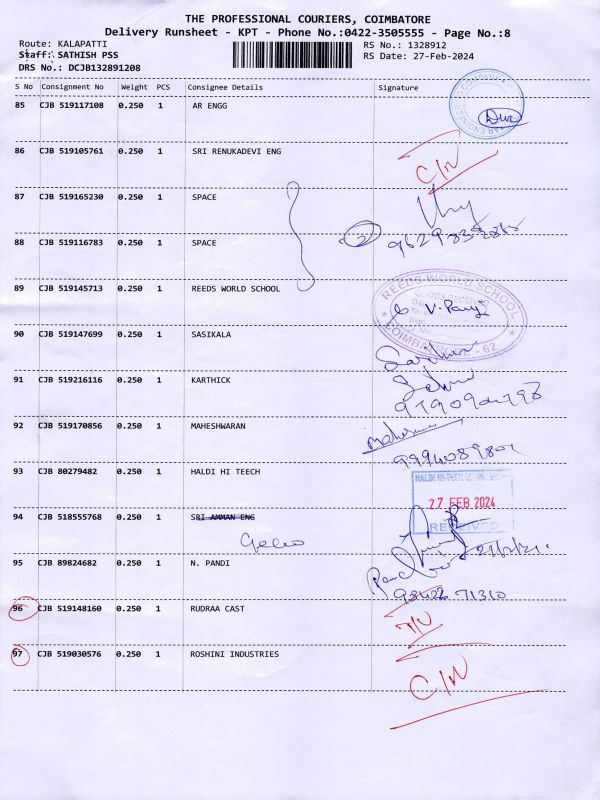 THE PROFESSIONAL COURIERS, COIMBATORE
Delivery Runsheet - KPT - Phone No.:0422-3505555 - Page No.:8
Route: KALAPATTI RS No.: 1328912
Staff: SATHISH PSS RS Date: 27-Feb-2024
DRS No.: DCJB132891208
S No Consignment No Weight PCS Consignee Details Signature
85 CJB 519117108 0.250 1 AR ENGG
86 CJB 519105761 0.250 1 SRI RENUKADEVI ENG
C/N
87 CJB 519165230 0.250 1 SPACE
88 CJB 519116783 0.250 1 SPACE
2
89 CJB 519145713 0.250 1 REEDS WORLD SCHOOL
REEDS WORLD SCHOOL
COIMBATORE - 62
90 CJB 519147699 0.250 1 SASIKALA
91 CJB 519216116 0.250 1 KARTHICK
92 CJB 519170856 0.250 1 MAHESHWARAN
93 CJB 80279482 0.250 1 HALDI HI TEECH
27 FEB 2024
RECEIVED
94 CJB 518555768 0.250 1 SRI AMMAN ENG
95 CJB 89824682 0.250 1 N. PANDI
96 CJB 519148160 0.250 1 RUDRAA CAST
97 CJB 519030576 0.250 1 ROSHINI INDUSTRIES
C/N